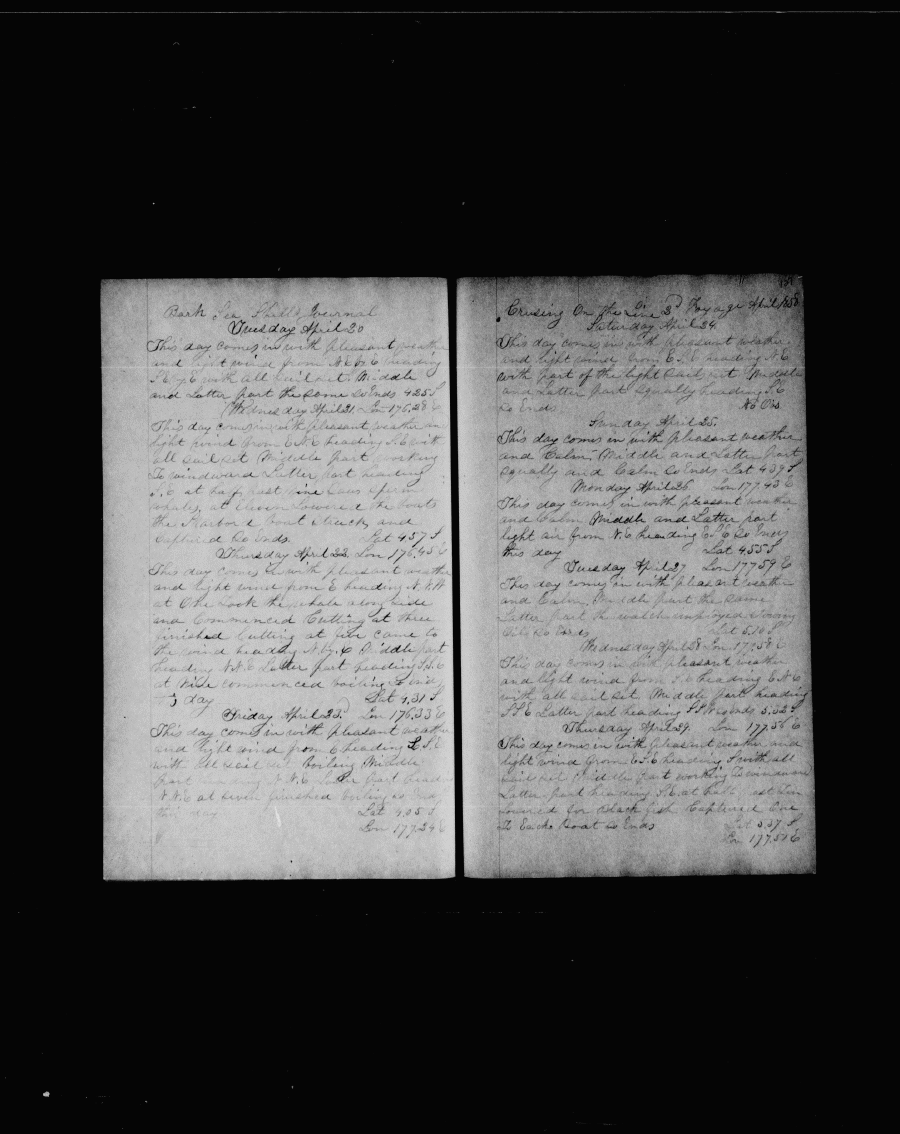 Bark Sea Shell's Journal
Tuesday April 20
This day comes in with pleasant weather
and light wind from N.E by E heading
S.E by E with all sail set Middle
and Latter part the same So Ends 4.25 S
Wednesday April 21. Lon 176.28 E
This day comes in with pleasant weather an
light wind from E N E heading S.E with
all sail set Middle part working
To windward Latter part heading
S.E at half past nine saw sperm
whales, at Eleven Lowered the boats
the Larbord boat struck and
captured So Ends Lat 4.57 S
Thursday April 22. Lon 176.45 E
This day comes in with pleasant weather
and light wind from E heading N.N.W
at One took the whale along side
and Commenced Cutting at three
finished Cutting at five came to
the wind heading N. by. E Middle part
heading N.N.E Latter part heading S.S.E
at Nine commenced boiling So Ends
this day Lat 4.31 S
Friday April 23. Lon 176.33 E
This day comes in with pleasant weather
and light wind from E heading S.S.E
with all sail set Boiling Middle
part heading N.N.E Latter part heading
N.N.E at seven finished boiling so End
this day Lat 4.05 S
Lon 177.24 E
Crusing On the Line 2d Voyage April 1858
Saturday April 24.
This day comes in with pleasant weather
and light wind from E.S.E heading N.E
with part of the light sail set Middle
and Latter part squally heading S.E
So Ends No Obs
Sunday April 25.
This day comes in with pleasant weather
and Calm, Middle and Latter part
squally and Calm So Ends Lat 4.39 S
Monday April 26 Lon 177.43 E
This day comes in with pleasant weather
and Calm Middle and Latter part
light air from N.E heading E.S.E So Ends
this day Lat 4.55 S
Tuesday April 27 Lon 177.59 E
This day comes in with pleasant weather
and Calm, Middle part the same
Latter part the watch employed stowing
Oil So Ends Lat 5.16 S
Wednesday April 28 Lon 177.58 E
This day comes in with pleasant weather
and light wind from S.E heading E.N.E
with all sail set Middle part heading
S.S.E Latter part heading S.S.W so ends 5.32 S
Thursday April 29. Lon 177.36 E
This day comes in with pleasant weather and
light wind from E.S.E heading S with all
sail set Middle part working To windward
Latter part heading S. at half past
Lowered for black fish Captured One
To Each Boat So Ends Lat 5.37 S
Lon 177.51 E